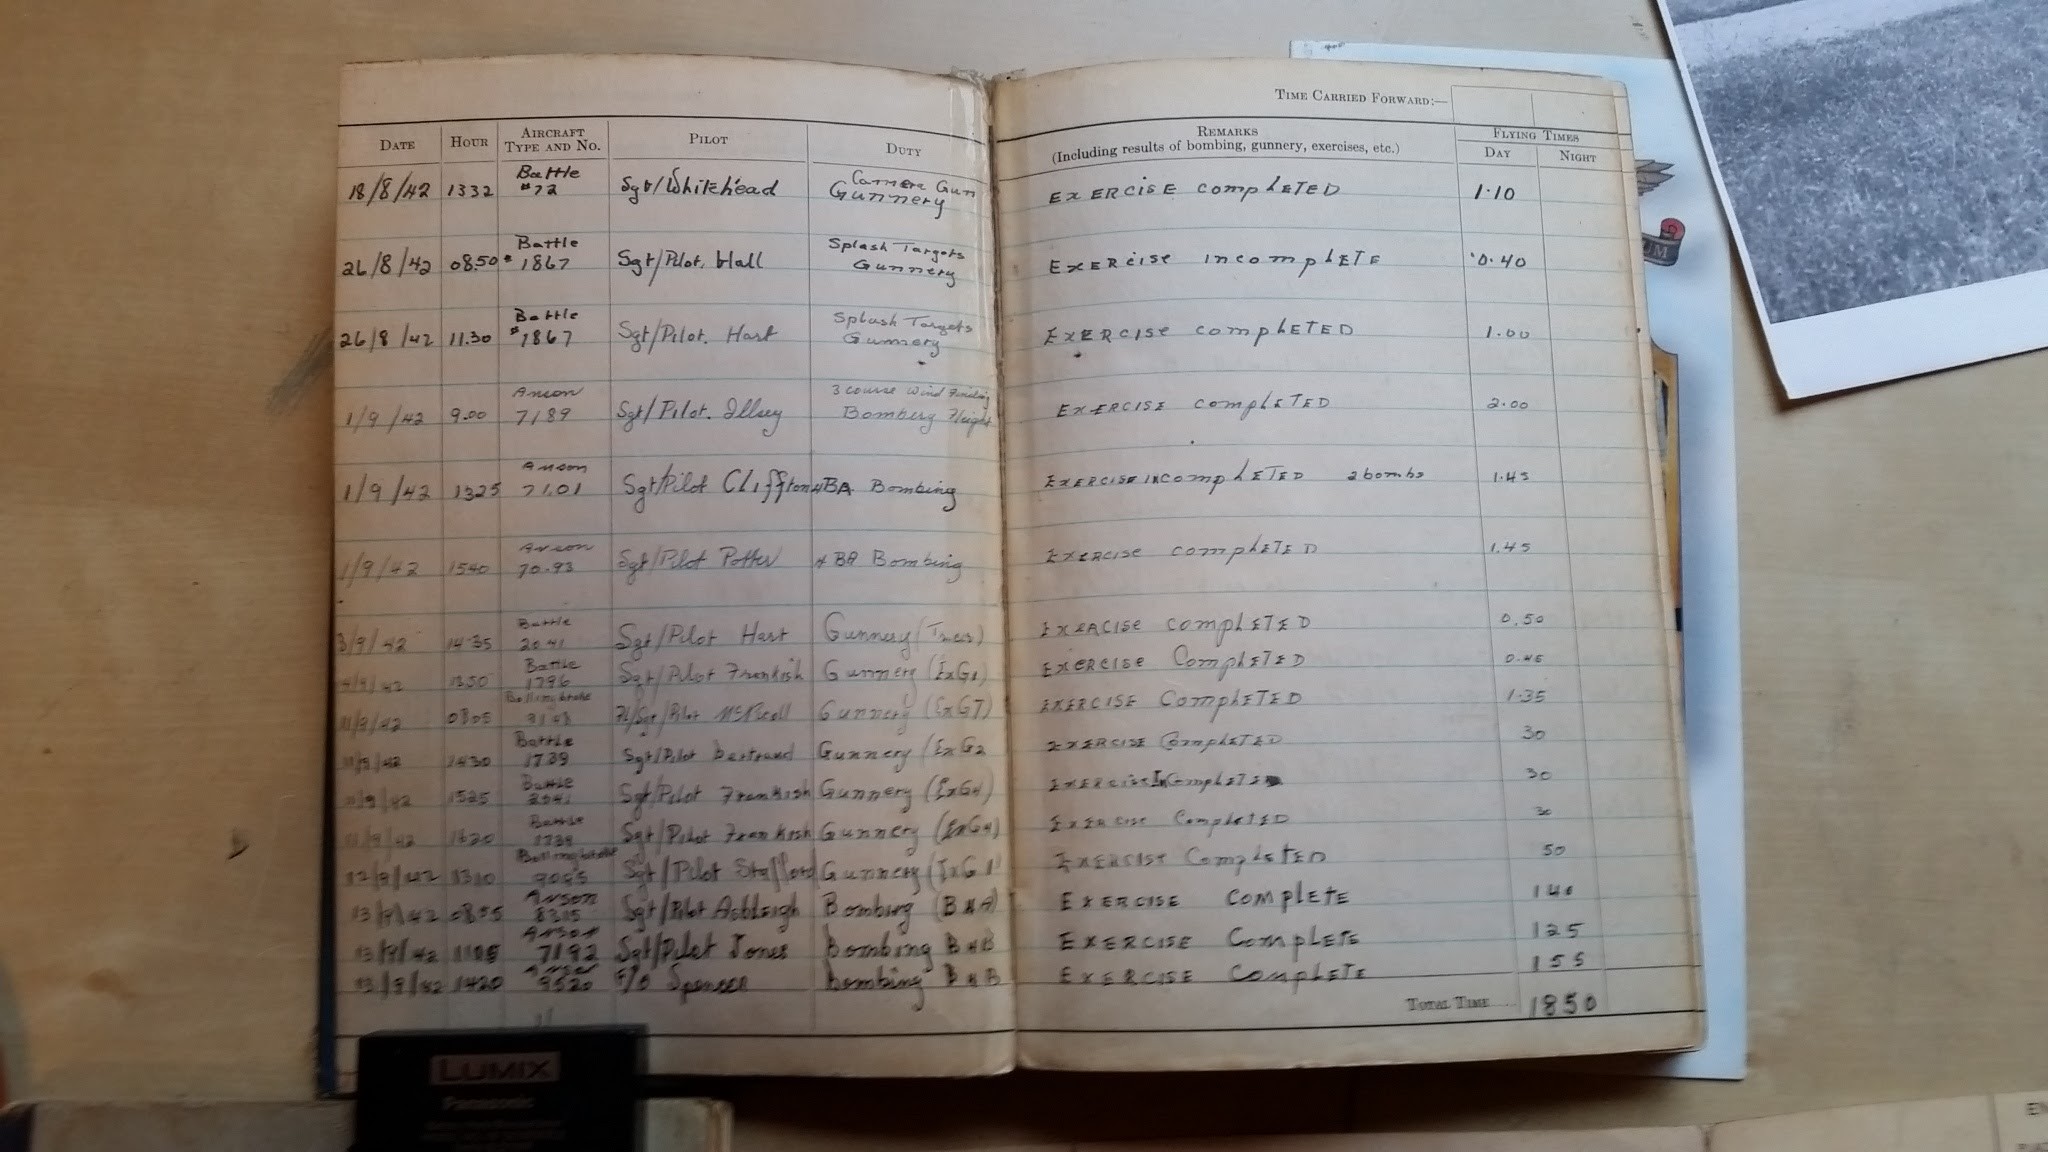 TIME CARRIED FORWARD:—
DATE HOUR AIRCRAFT TYPE AND No. PILOT DUTY REMARKS (Including results of bombing, gunnery, exercises, etc.) FLYING TIMES DAY NIGHT
18/8/42 1332 Battle #72 Sgt/Whitehead Camera Gun Gunnery EXERCISE COMPLETED 1.10
26/8/42 08.50 Battle # 1867 Sgt/Pilot. Hall Splash Targets Gunnery EXERCISE INCOMPLETE 0.40
26/8/42 11.30 Battle # 1867 Sgt/Pilot. Hart Splash Targets Gunnery EXERCISE COMPLETED 1.00
1/9/42 9.00 Anson 7189 Sgt/Pilot. Illsey 3 course Wind Finding Bombing Flight EXERCISE COMPLETED 2.00
1/9/42 1325 Anson 71.01 Sgt/Pilot Cliffton BA Bombing EXERCISE INCOMPLETED 2 bombs 1.45
1/9/42 1540 Anson 70.93 Sgt/Pilot Potter BA Bombing EXERCISE COMPLETED 1.45
3/9/42 14.35 Battle 2041 Sgt/Pilot Hart Gunnery EXERCISE COMPLETED 0.50
1350 Battle 1796 Sgt/Pilot Frenkish Gunnery EXERCISE COMPLETED 0.45
11/9/42 0805 Bolingbroke Sgt/Pilot Gunnery (ExG7) EXERCISE COMPLETED 1.35
11/9/42 1430 Battle 1739 Sgt/Pilot bertrand Gunnery (ExG2 EXERCISE COMPLETED 30
11/9/42 1525 Battle 2041 Sgt/Pilot Frenkish Gunnery (ExG4) EXERCISE InCOMPLETE 30
11/9/42 1620 Battle 1739 Sgt/Pilot Frenkish Gunnery (ExG4) EXERCISE COMPLETED 30
12/9/42 1310 Bolingbroke Sgt/Pilot Stafford Gunnery EXERCISE COMPLETED 50
13/9/42 0855 Anson Sgt/Pilot Ashleigh Bombing EXERCISE COMPLETE 140
13/9/42 1105 Anson 7192 Sgt/Pilot Jones Bombing EXERCISE COMPLETE 125
13/9/42 1420 Anson F/O Spencer Bombing EXERCISE COMPLETE 155
TOTAL TIME .... 1850
LUMIX
Panasonic